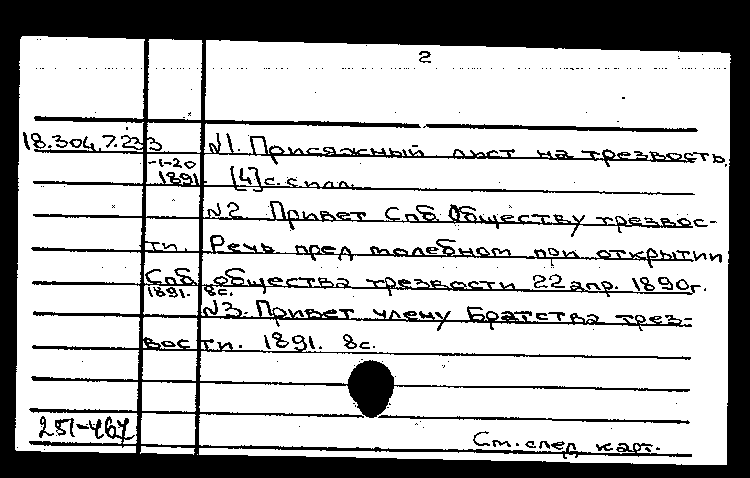 2
18.304.7.233 №1. Присяжный лист на трезвость.
-1-20
1891. [4]с. с илл.
№2 Привет Спб. Обществу трезвос-
ти. Речь пред молебном при открытии
Спб. общества трезвости 22 апр. 1890г.
1891. 8с.
№3. Привет члену Братства трез-
вости. 1891. 8с.
251-467
См. след карт.